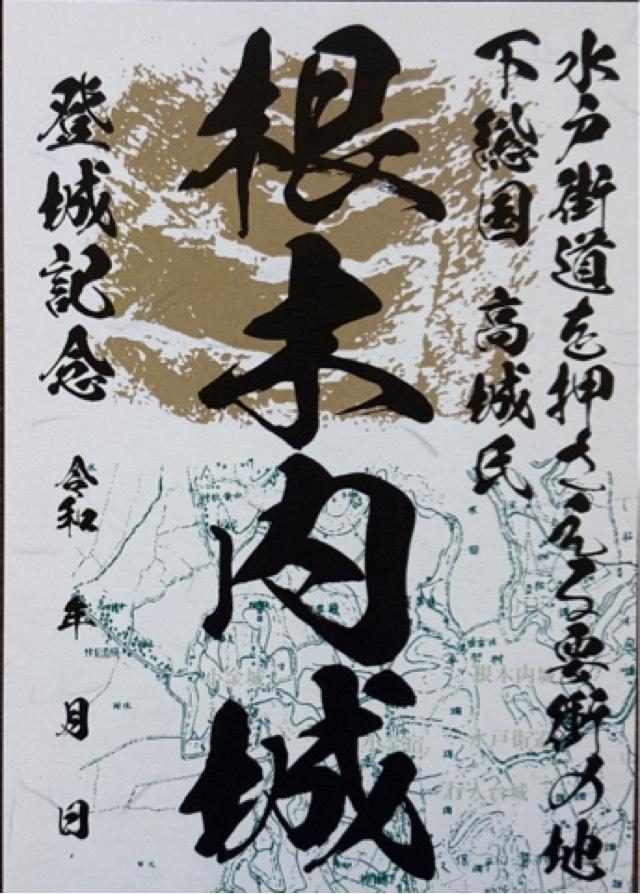 水戸街道を押さえる要衝の地
下総国 高城氏
根木内城
登城記念
令和 年 月 日
小金城
根木内城
水戸街道
行人台城